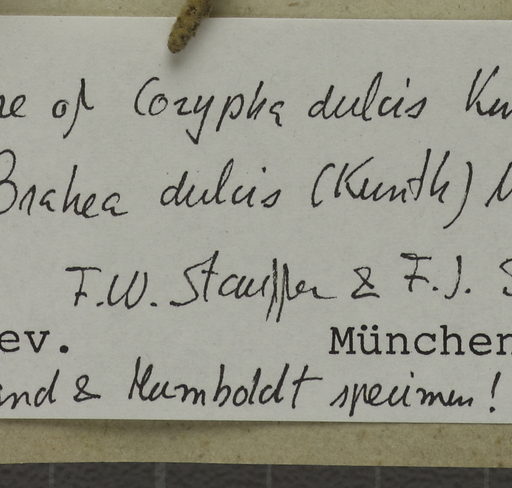 re of Corypha dulcis Kun
Brahea dulcis (Kunth) M
F.W. Stauffer & F.J. S
ev. München
and & Humboldt specimen!